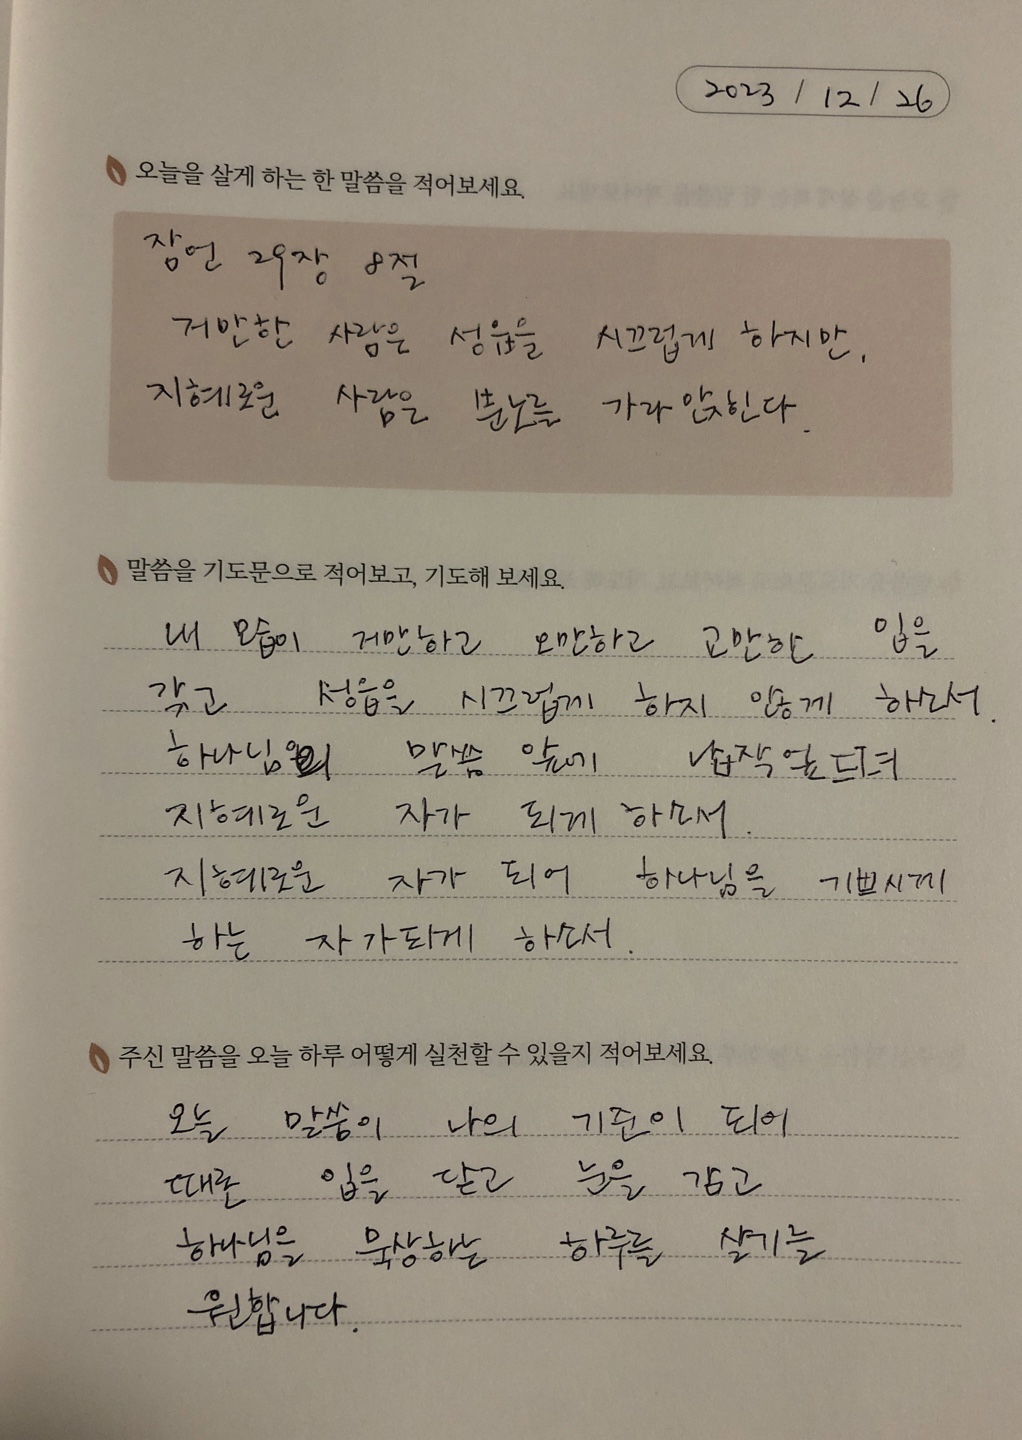 2023 / 12 / 26
오늘을 살게 하는 한 말씀을 적어보세요.
잠언 29장 8절
거만한 사람은 성읍을 시끄럽게 하지만,
지혜로운 사람은 분노를 가라앉힌다.
말씀을 기도문으로 적어보고, 기도해 보세요.
내 모습이 거만하고 오만하고 교만한 입을
갖고 성읍을 시끄럽게 하지 않게 하소서.
하나님의 말씀 앞에 납작 엎드려
지혜로운 자가 되게 하소서.
지혜로운 자가 되어 하나님을 기쁘시게
하는 자가 되게 하소서.
주신 말씀을 오늘 하루 어떻게 실천할 수 있을지 적어보세요.
오늘 말씀이 나의 기준이 되어
때론 입을 닫고 눈을 감고
하나님을 묵상하는 하루를 살기를
원합니다.